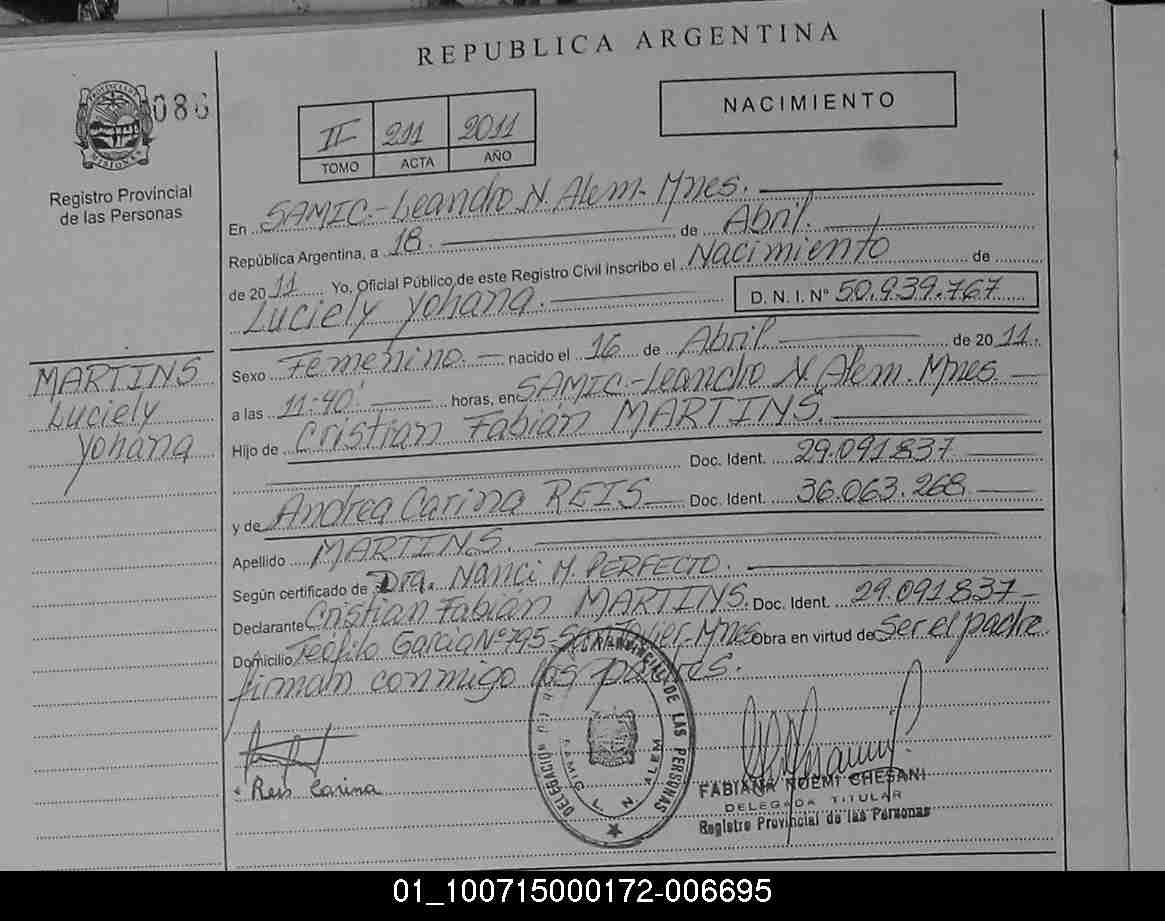 REPUBLICA ARGENTINA
086
NACIMIENTO
II 211 2011
TOMO ACTA AÑO
PROVINCIA DE MISIONES
Registro Provincial
de las Personas
En SAMIC.-Leandro N. Alem- Mnes.
República Argentina, a 18. de Abril.
de 2011 Yo, Oficial Público de este Registro Civil inscribo el Nacimiento de
Luciely Yohana. D. N. I. Nº 50.939.767
Sexo Femenino. nacido el 16 de Abril de 2011.
MARTINS
Luciely
Yohana
a las 11:40' horas, en SAMIC.-Leandro N. Alem. Mnes
Hijo de Cristian Fabián MARTINS.
Doc. Ident. 29.091.837
y de Andrea Carina REIS Doc. Ident. 36.063.268
Apellido MARTINS.
Según certificado de Dra. Nanci M. PERFECTO.
Declarante Cristian Fabián MARTINS. Doc. Ident. 29.091.837
Domicilio Teófilo Garcia Nº 795-San Javier. Mnes Obra en virtud de Ser el padre.
firman conmigo los padres.
Reis Carina
DELEGACIÓN PROVINCIAL DE LAS PERSONAS
SAMIC L. N. ALEM
FABIANA NOEMI CHESANI
DELEGADA TITULAR
Registro Provincial de las Personas
01_100715000172-006695